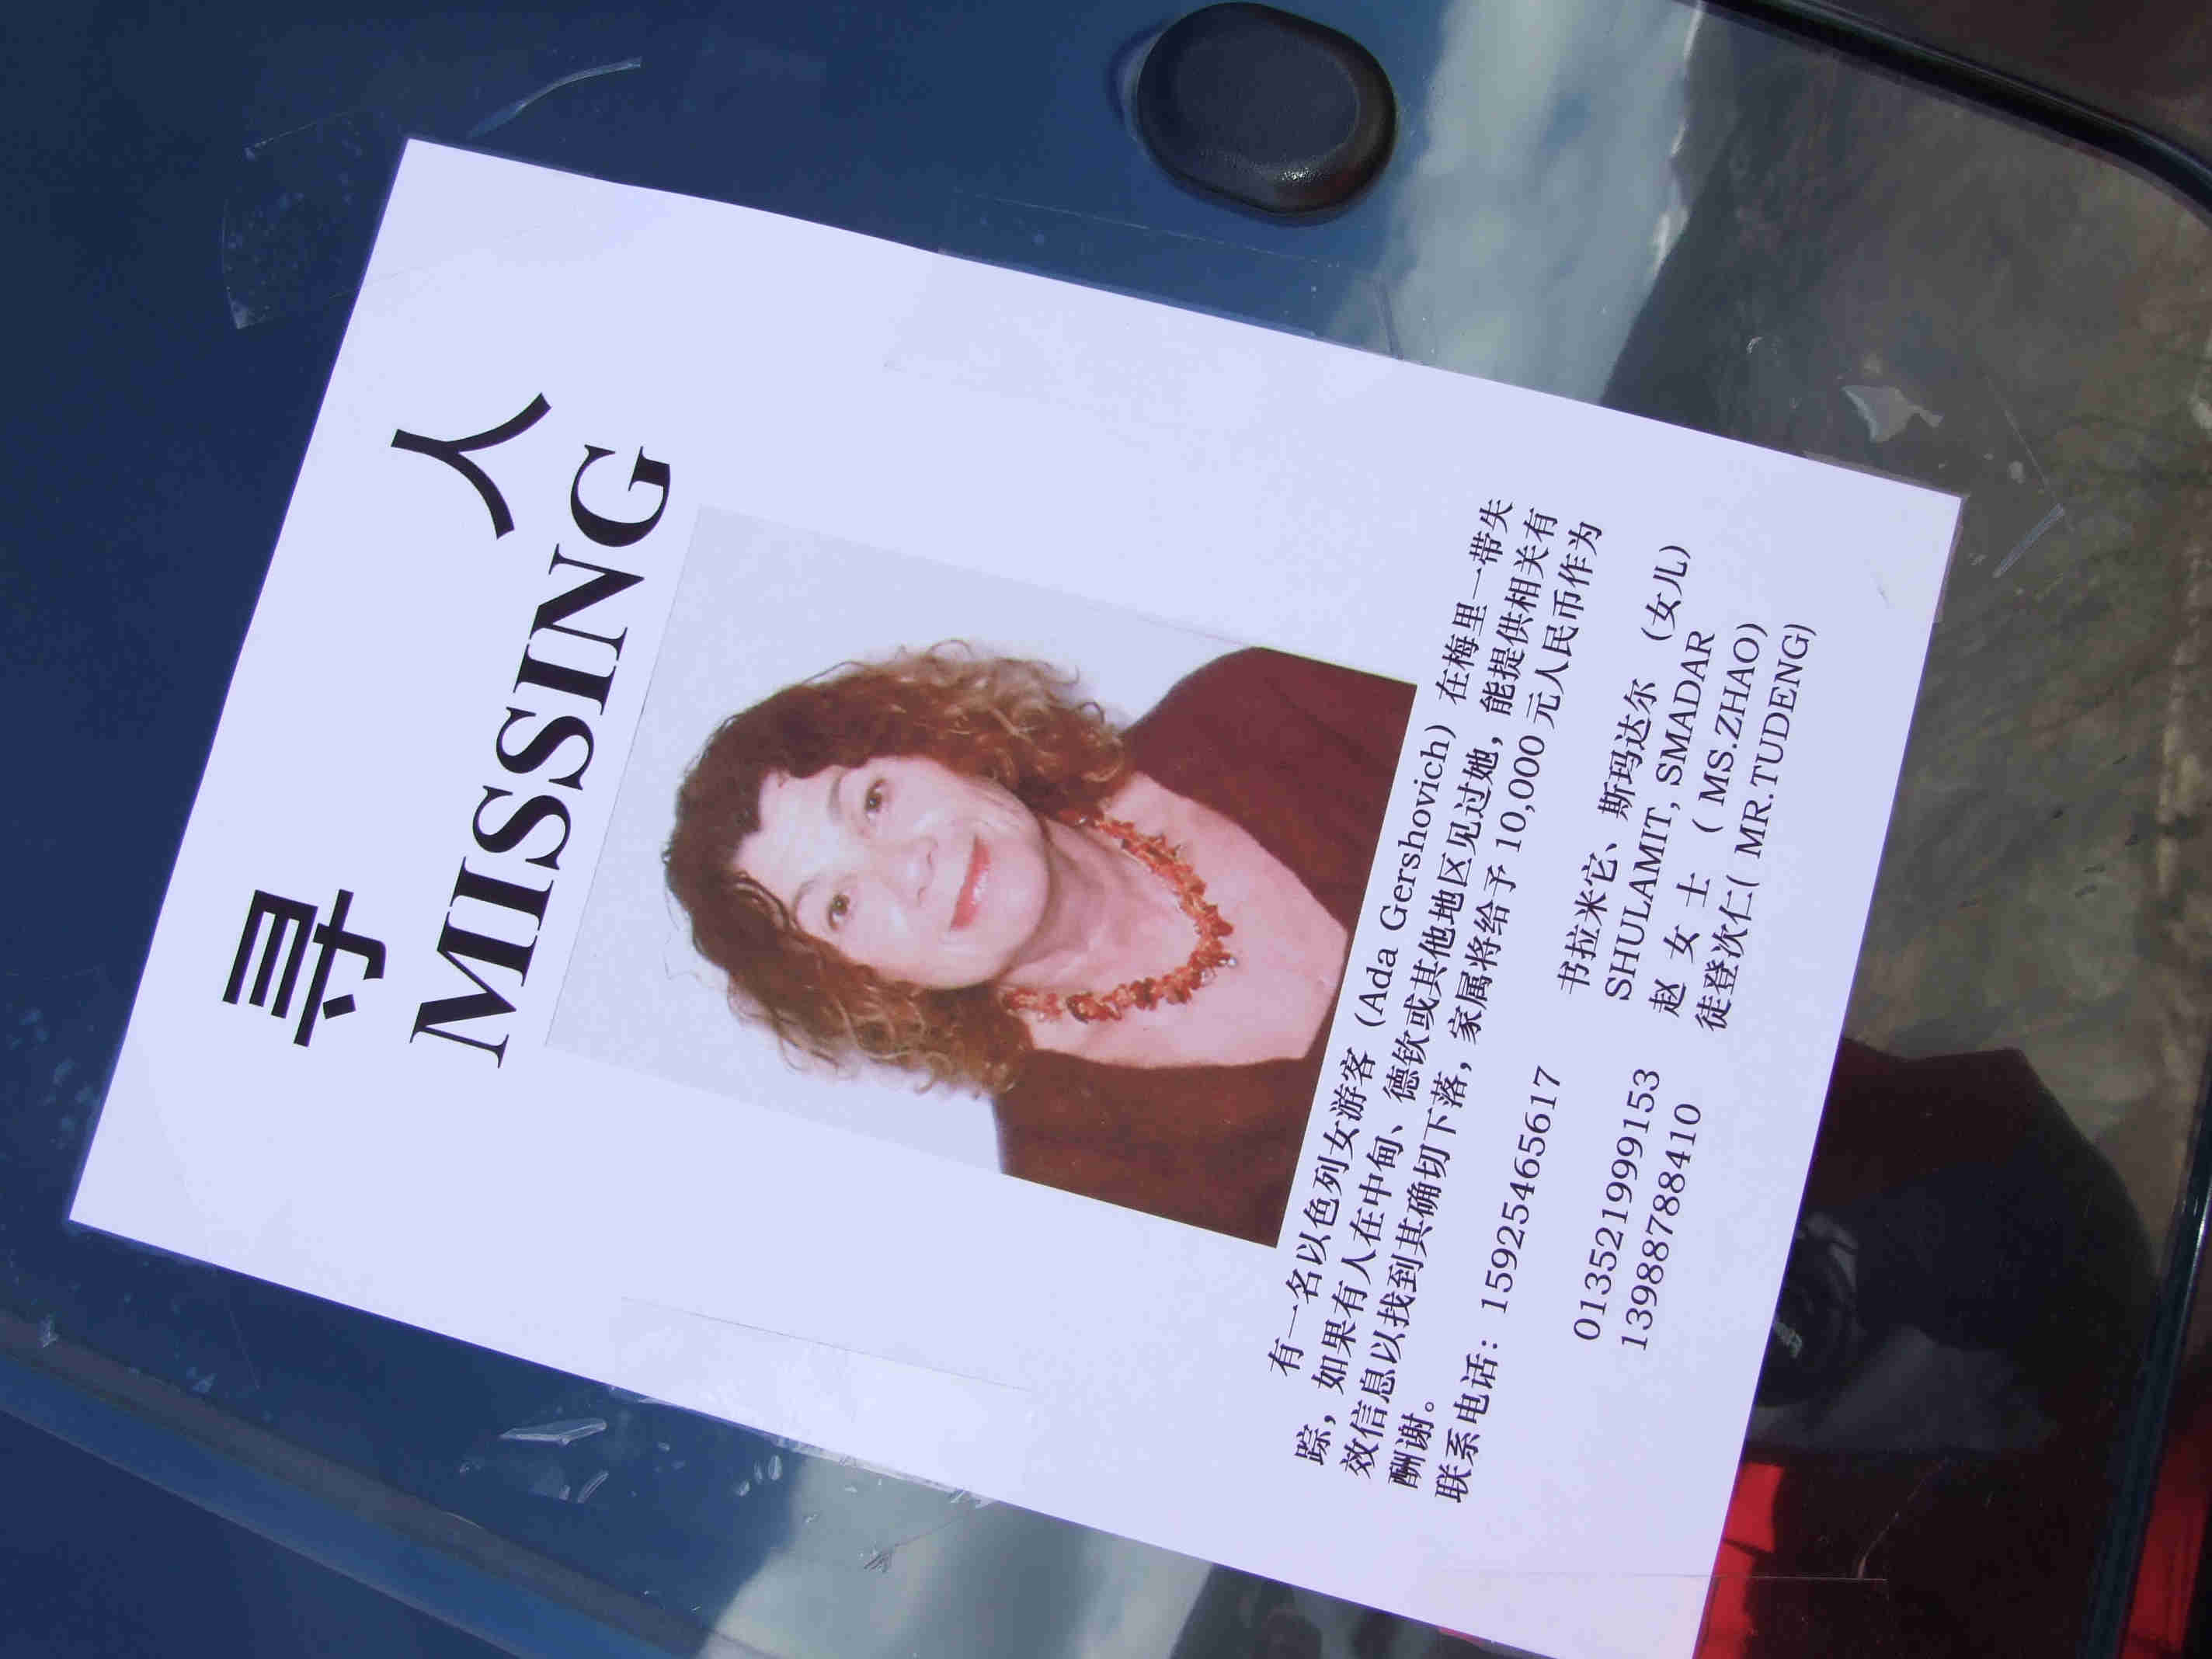 寻 人
MISSING
有一名以色列女游客（Ada Gershovich）在梅里一带失
踪，如果有人在中甸、德钦或其他地区见过她，能提供相关有
效信息以找到其确切下落，家属将给予 10,000 元人民币作为
酬谢。
联系电话：15925465617 书拉米它、斯玛达尔 （女儿）
SHULAMIT, SMADAR
013521999153 赵 女 士 （ MS.ZHAO）
13988788410 徒登次仁( MR.TUDENG)